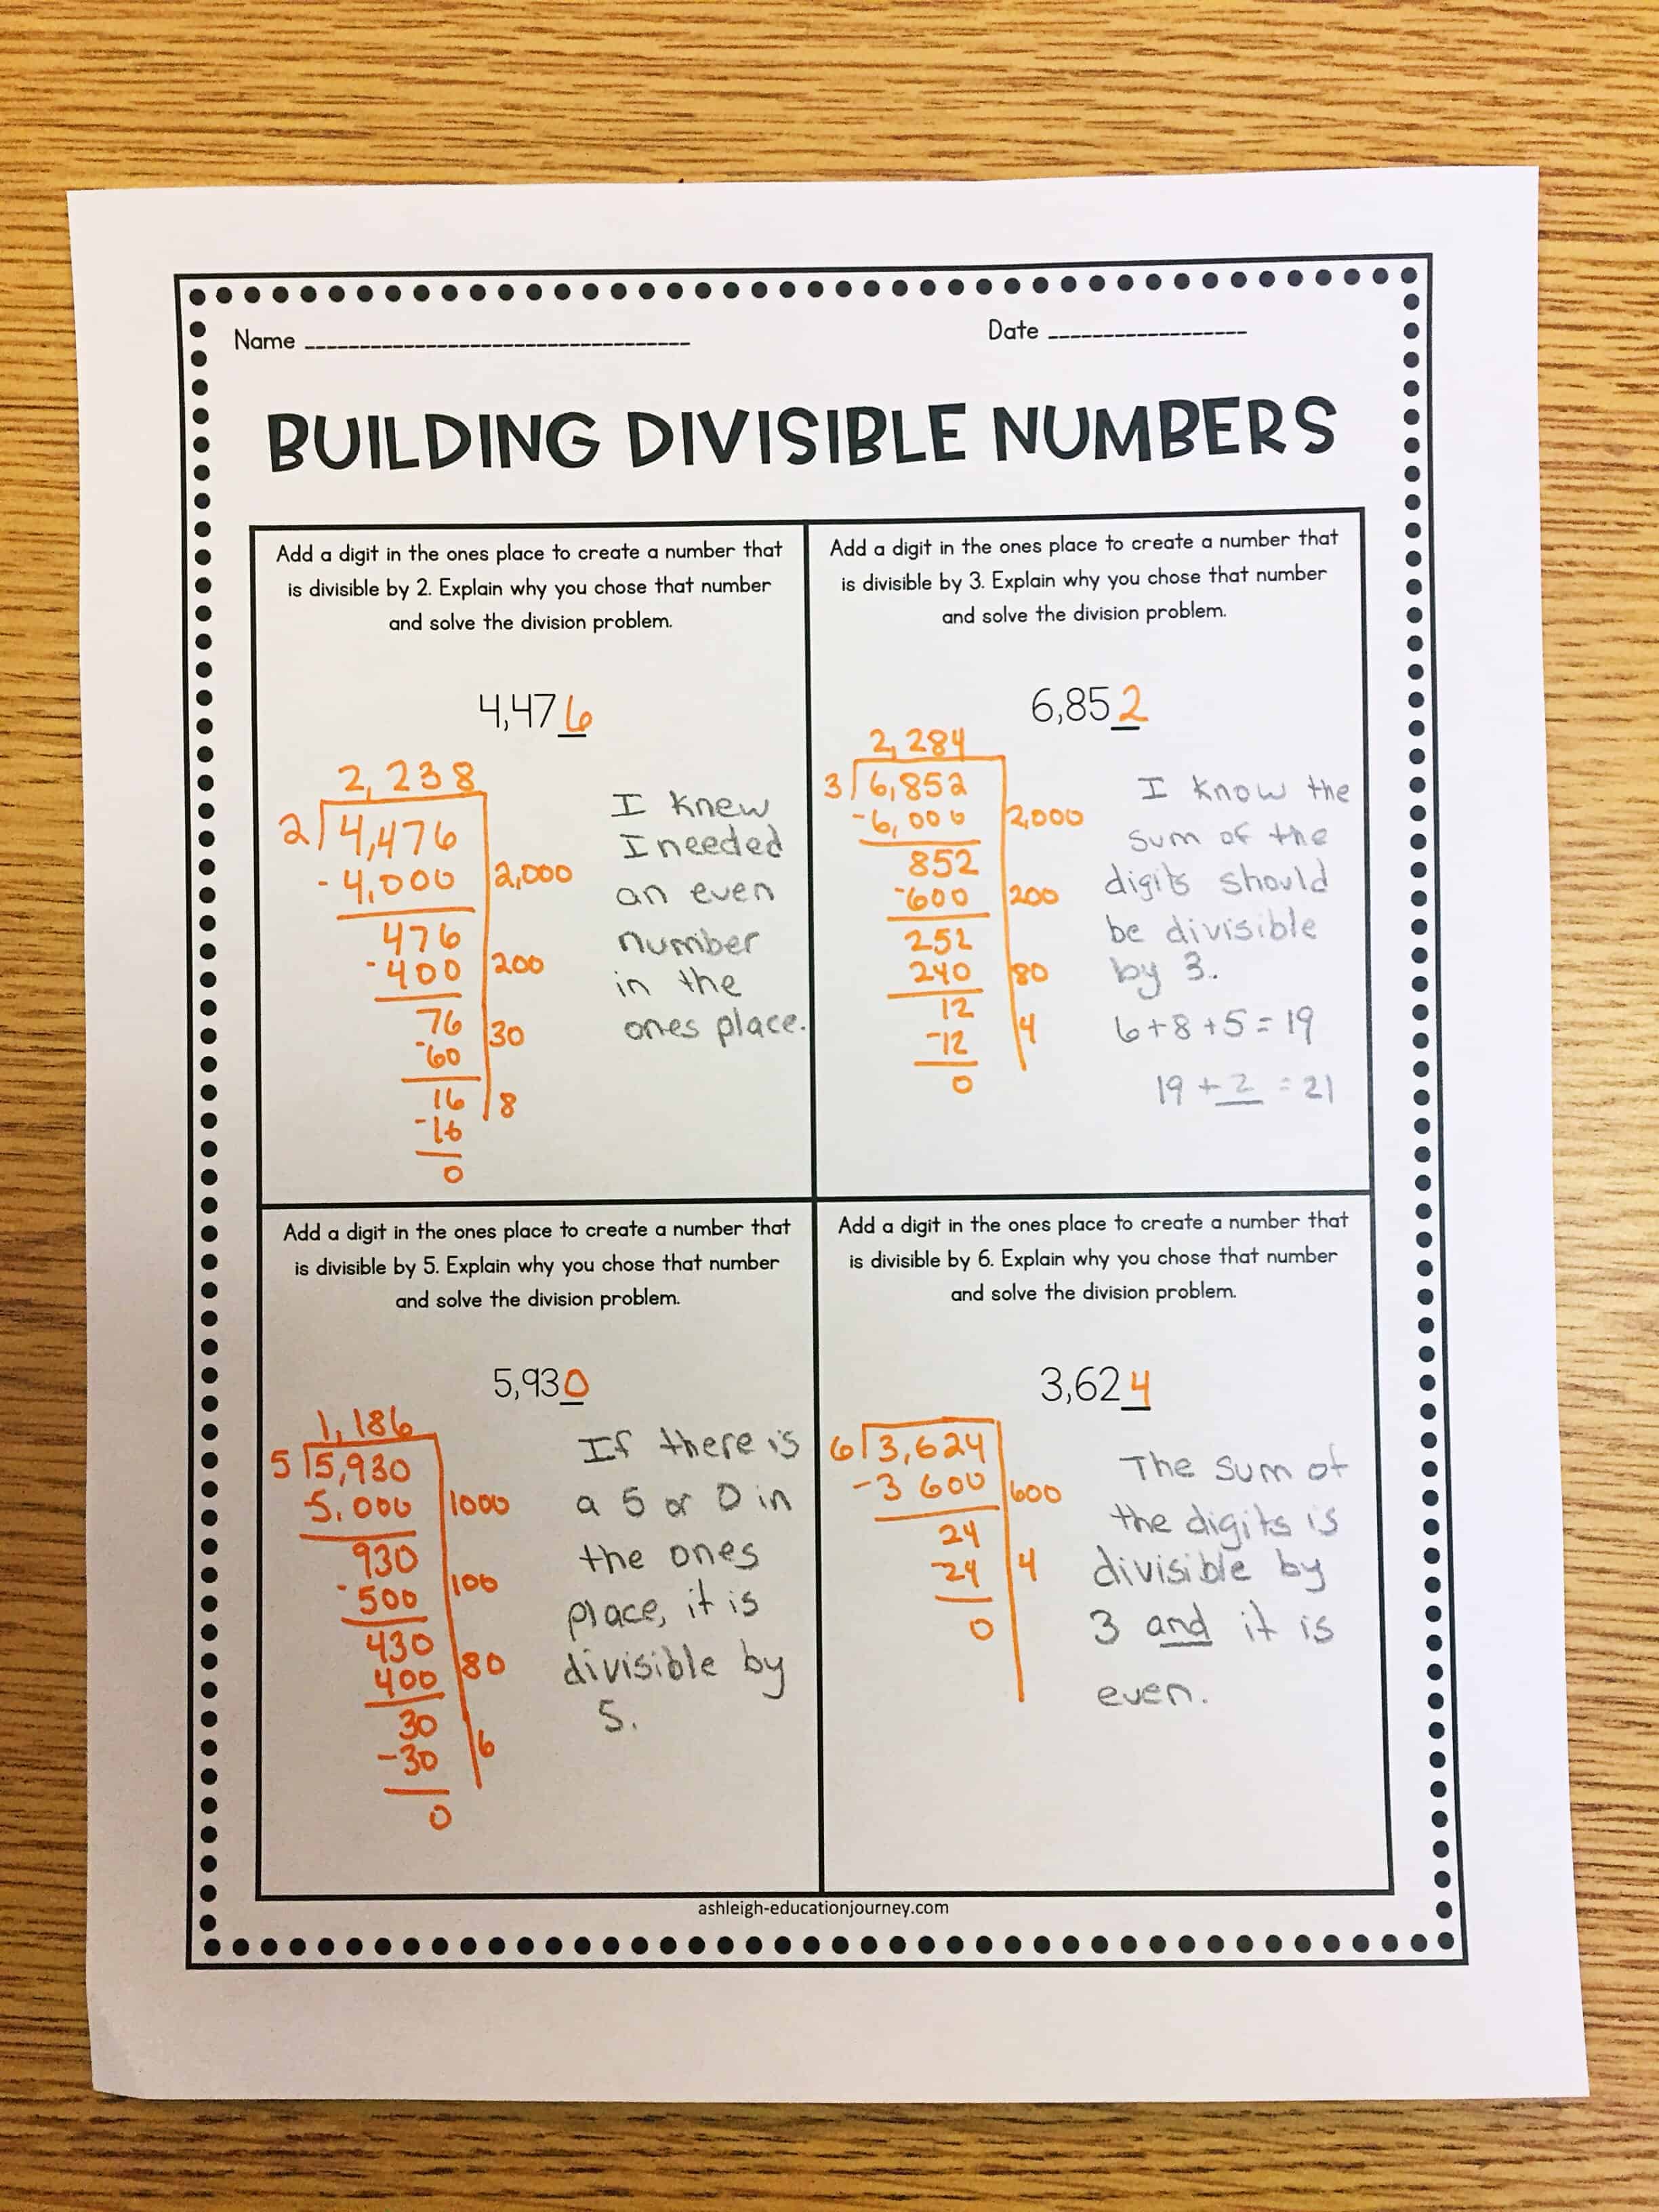 Name
Date
BUILDING DIVISIBLE NUMBERS
Add a digit in the ones place to create a number that
is divisible by 2. Explain why you chose that number
and solve the division problem.
4,476
2,238
2 4,476
-4,000 2,000
476
-400 200
76 30
-60
16 8
-16
0
I knew
I needed
an even
number
in the
ones place.
Add a digit in the ones place to create a number that
is divisible by 3. Explain why you chose that number
and solve the division problem.
6,852
2,284
3 6,852
-6,000 2,000
852
-600 200
252
240 80
12
-12 4
0
I know the
sum of the
digits should
be divisible
by 3.
6+8+5=19
19+2=21
Add a digit in the ones place to create a number that
is divisible by 5. Explain why you chose that number
and solve the division problem.
5,930
1,186
5 5,930
5,000 1000
930
-500 100
430
400 80
30
-30 6
0
If there is
a 5 or 0 in
the ones
place, it is
divisible by
5.
Add a digit in the ones place to create a number that
is divisible by 6. Explain why you chose that number
and solve the division problem.
3,624
6 3,624
-3 600 600
24
24 4
0
The sum of
the digits is
divisible by
3 and it is
even.
ashleigh-educationjourney.com